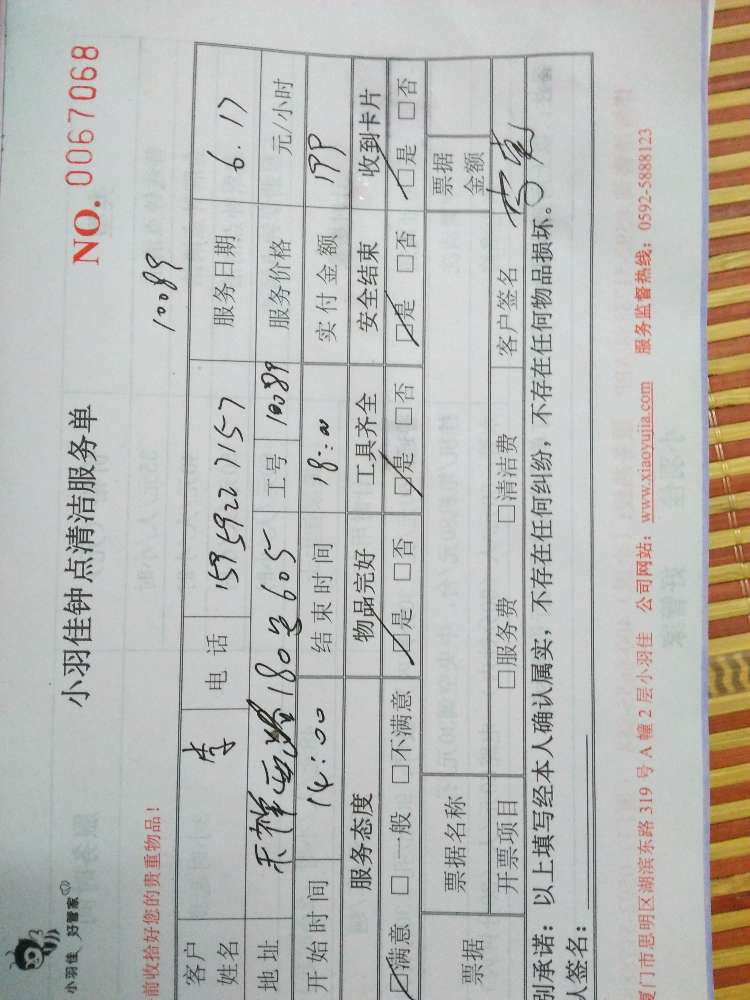 小羽佳 好管家
小羽佳钟点清洁服务单
NO. 0067068
前收拾好您的贵重物品!
10089
客户姓名 李 电话 15959227157 服务日期 6.17
地址 天祥西路180号605 工号 10089 服务价格 元/小时
开始时间 14:00 结束时间 18:00 实付金额 199
服务态度 物品完好 工具齐全 安全结束 收到卡片
☑满意 □一般 □不满意 ☑是 □否 ☑是 □否 ☑是 □否 ☑是 □否
票据 票据名称 票据金额
开票项目 □服务费 □清洁费 客户签名
别承诺:以上填写经本人确认属实,不存在任何纠纷,不存在任何物品损坏。
人签名:
厦门市思明区湖滨东路319号A幢2层小羽佳 公司网站:www.xiaoyujia.com 服务监督热线:0592-5888123